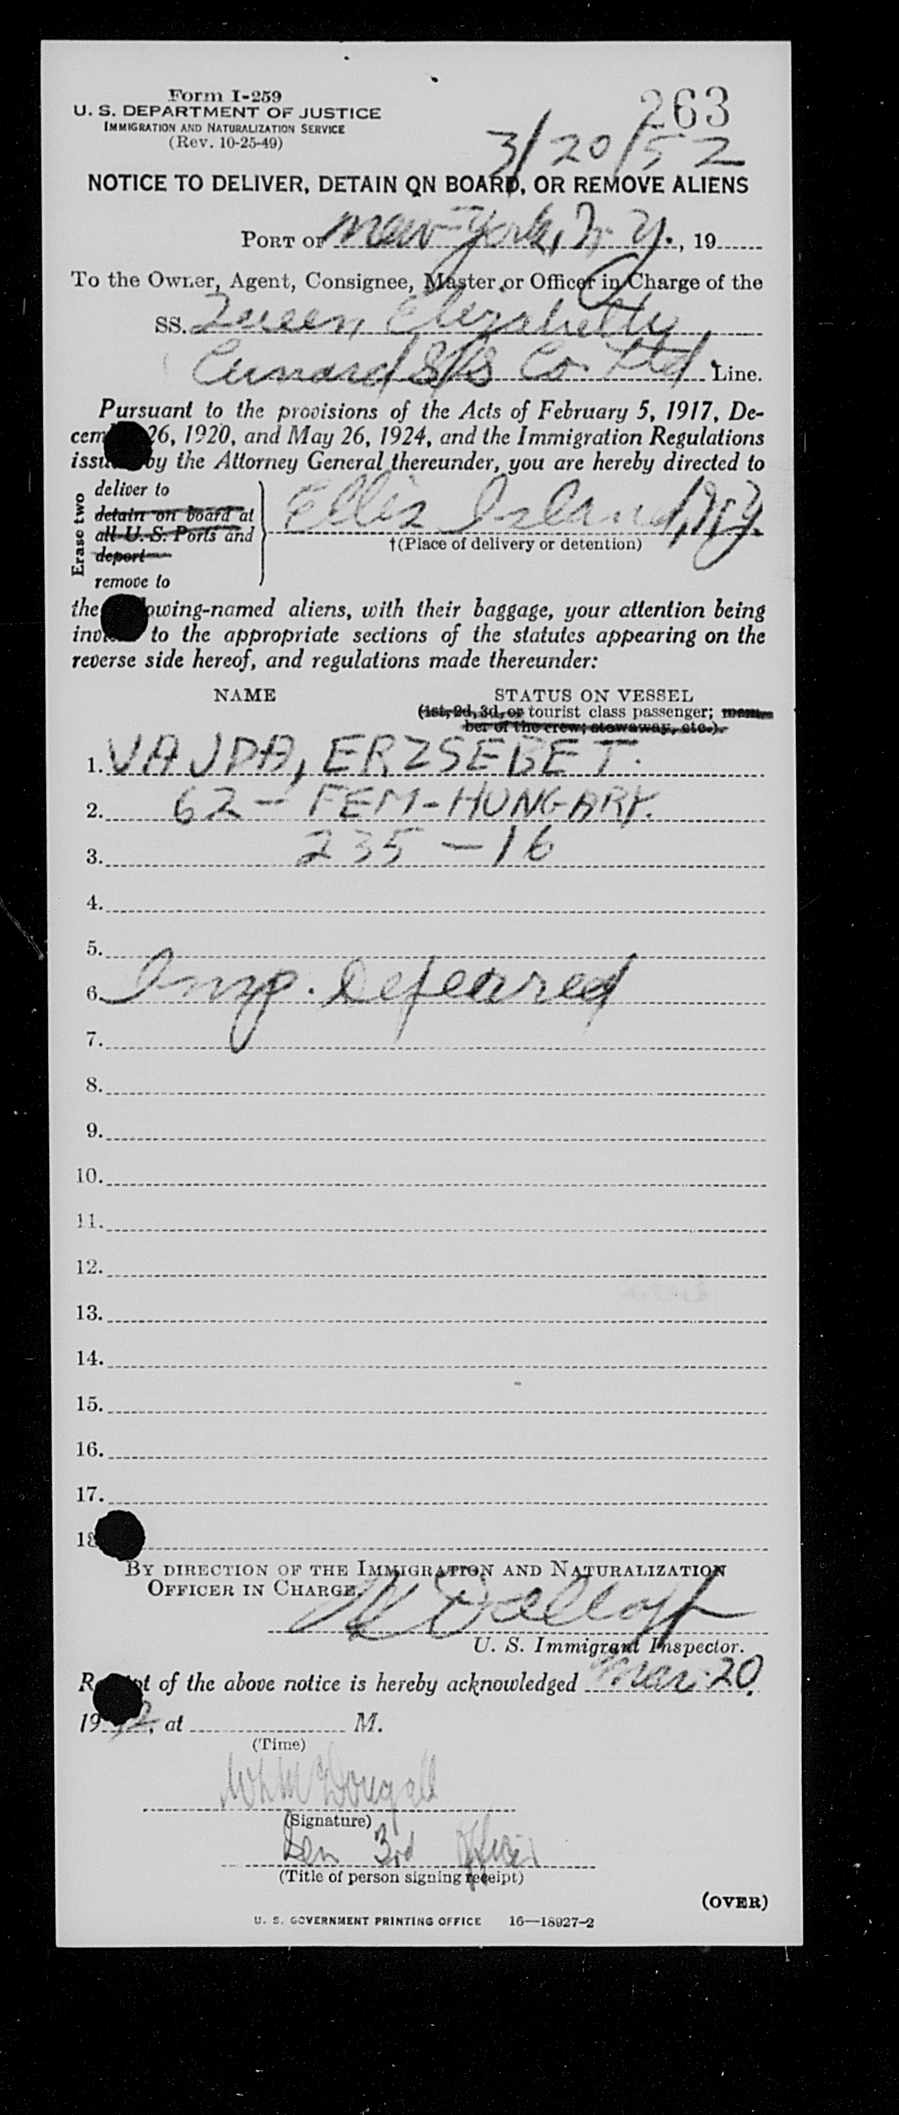 Form I-259
U. S. DEPARTMENT OF JUSTICE
IMMIGRATION AND NATURALIZATION SERVICE
(Rev. 10-25-49)
263
3/20/52
NOTICE TO DELIVER, DETAIN ON BOARD, OR REMOVE ALIENS
PORT OF New York, N. Y., 19
To the Owner, Agent, Consignee, Master or Officer in Charge of the
SS. Queen Elizabeth
Cunard S/S Co. Ltd. Line.
Pursuant to the provisions of the Acts of February 5, 1917, De-
cem 26, 1920, and May 26, 1924, and the Immigration Regulations
issu by the Attorney General thereunder, you are hereby directed to
Erase two
deliver to
detain on board at
all U. S. Ports and
deport
remove to
Ellis Island, N.Y.
†(Place of delivery or detention)
the owing-named aliens, with their baggage, your attention being
inv to the appropriate sections of the statutes appearing on the
reverse side hereof, and regulations made thereunder:
NAME
STATUS ON VESSEL
(1st, 2d, 3d, or tourist class passenger; mem-
ber of the crew; stowaway, etc.)
1. VAJDA, ERZSEBET.
2. 62 - FEM - HUNGARY.
3. 235 - 16
4.
5.
6. Insp. Defearred
7.
8.
9.
10.
11.
12.
13.
14.
15.
16.
17.
18
BY DIRECTION OF THE IMMIGRATION AND NATURALIZATION
OFFICER IN CHARGE.
U. S. Immigrant Inspector.
R t of the above notice is hereby acknowledged Mar. 20,
19 52, at M.
(Time)
McDougall
(Signature)
Sen 3rd Officer
(Title of person signing receipt)
(OVER)
U. S. GOVERNMENT PRINTING OFFICE 16—18927-2